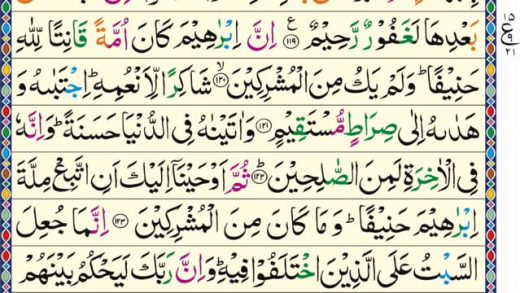 بَعْدِهَا لَغَفُوْرٌ رَّحِيْمٌ ۧ﴿۱۱۹﴾ اِنَّ اِبْرٰهِيْمَ كَانَ اُمَّةً قَانِتًا لِّلّٰهِ
حَنِيْفًا ؕ وَلَمْ يَكُ مِنَ الْمُشْرِكِيْنَ ۙ﴿۱۲۰﴾ شَاكِرًا لِّاَنْعُمِهٖ ؕ اِجْتَبٰىهُ وَ
هَدٰىهُ اِلٰى صِرَاطٍ مُّسْتَقِيْمٍ ﴿۱۲۱﴾ وَاٰتَيْنٰهُ فِى الدُّنْيَا حَسَنَةً ؕ وَاِنَّهٗ
فِى الْاٰخِرَةِ لَمِنَ الصّٰلِحِيْنَ ؕ﴿۱۲۲﴾ ثُمَّ اَوْحَيْنَاۤ اِلَيْكَ اَنِ اتَّبِعْ مِلَّةَ
اِبْرٰهِيْمَ حَنِيْفًا ؕ وَمَا كَانَ مِنَ الْمُشْرِكِيْنَ ﴿۱۲۳﴾ اِنَّمَا جُعِلَ
السَّبْتُ عَلَى الَّذِيْنَ اخْتَلَفُوْا فِيْهِ ؕ وَاِنَّ رَبَّكَ لَيَحْكُمُ بَيْنَهُمْ